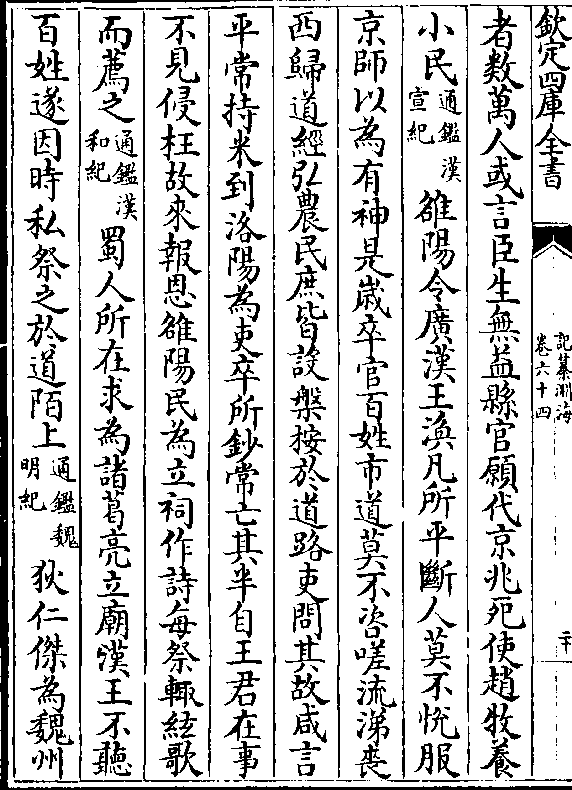 欽定四庫全書
記纂淵海
卷六十四
二十
者數萬人或言臣生無益縣官願代京兆死使趙牧養
小民通鑑漢宣紀雒陽令廣漢王渙凡所平斷人莫不悅服
京師以為有神是歲卒官百姓市道莫不咨嗟流涕喪
西歸道經弘農民庶皆設槃桉於道路吏問其故咸言
平常持米到洛陽為吏卒所鈔常亡其半自王君在事
不見侵枉故來報恩雒陽民為立祠作詩每祭輙絃歌
而薦之通鑑漢和紀蜀人所在求為諸葛亮立廟漢王不聽
百姓遂因時私祭之於道陌上通鑑魏明紀狄仁傑為魏州